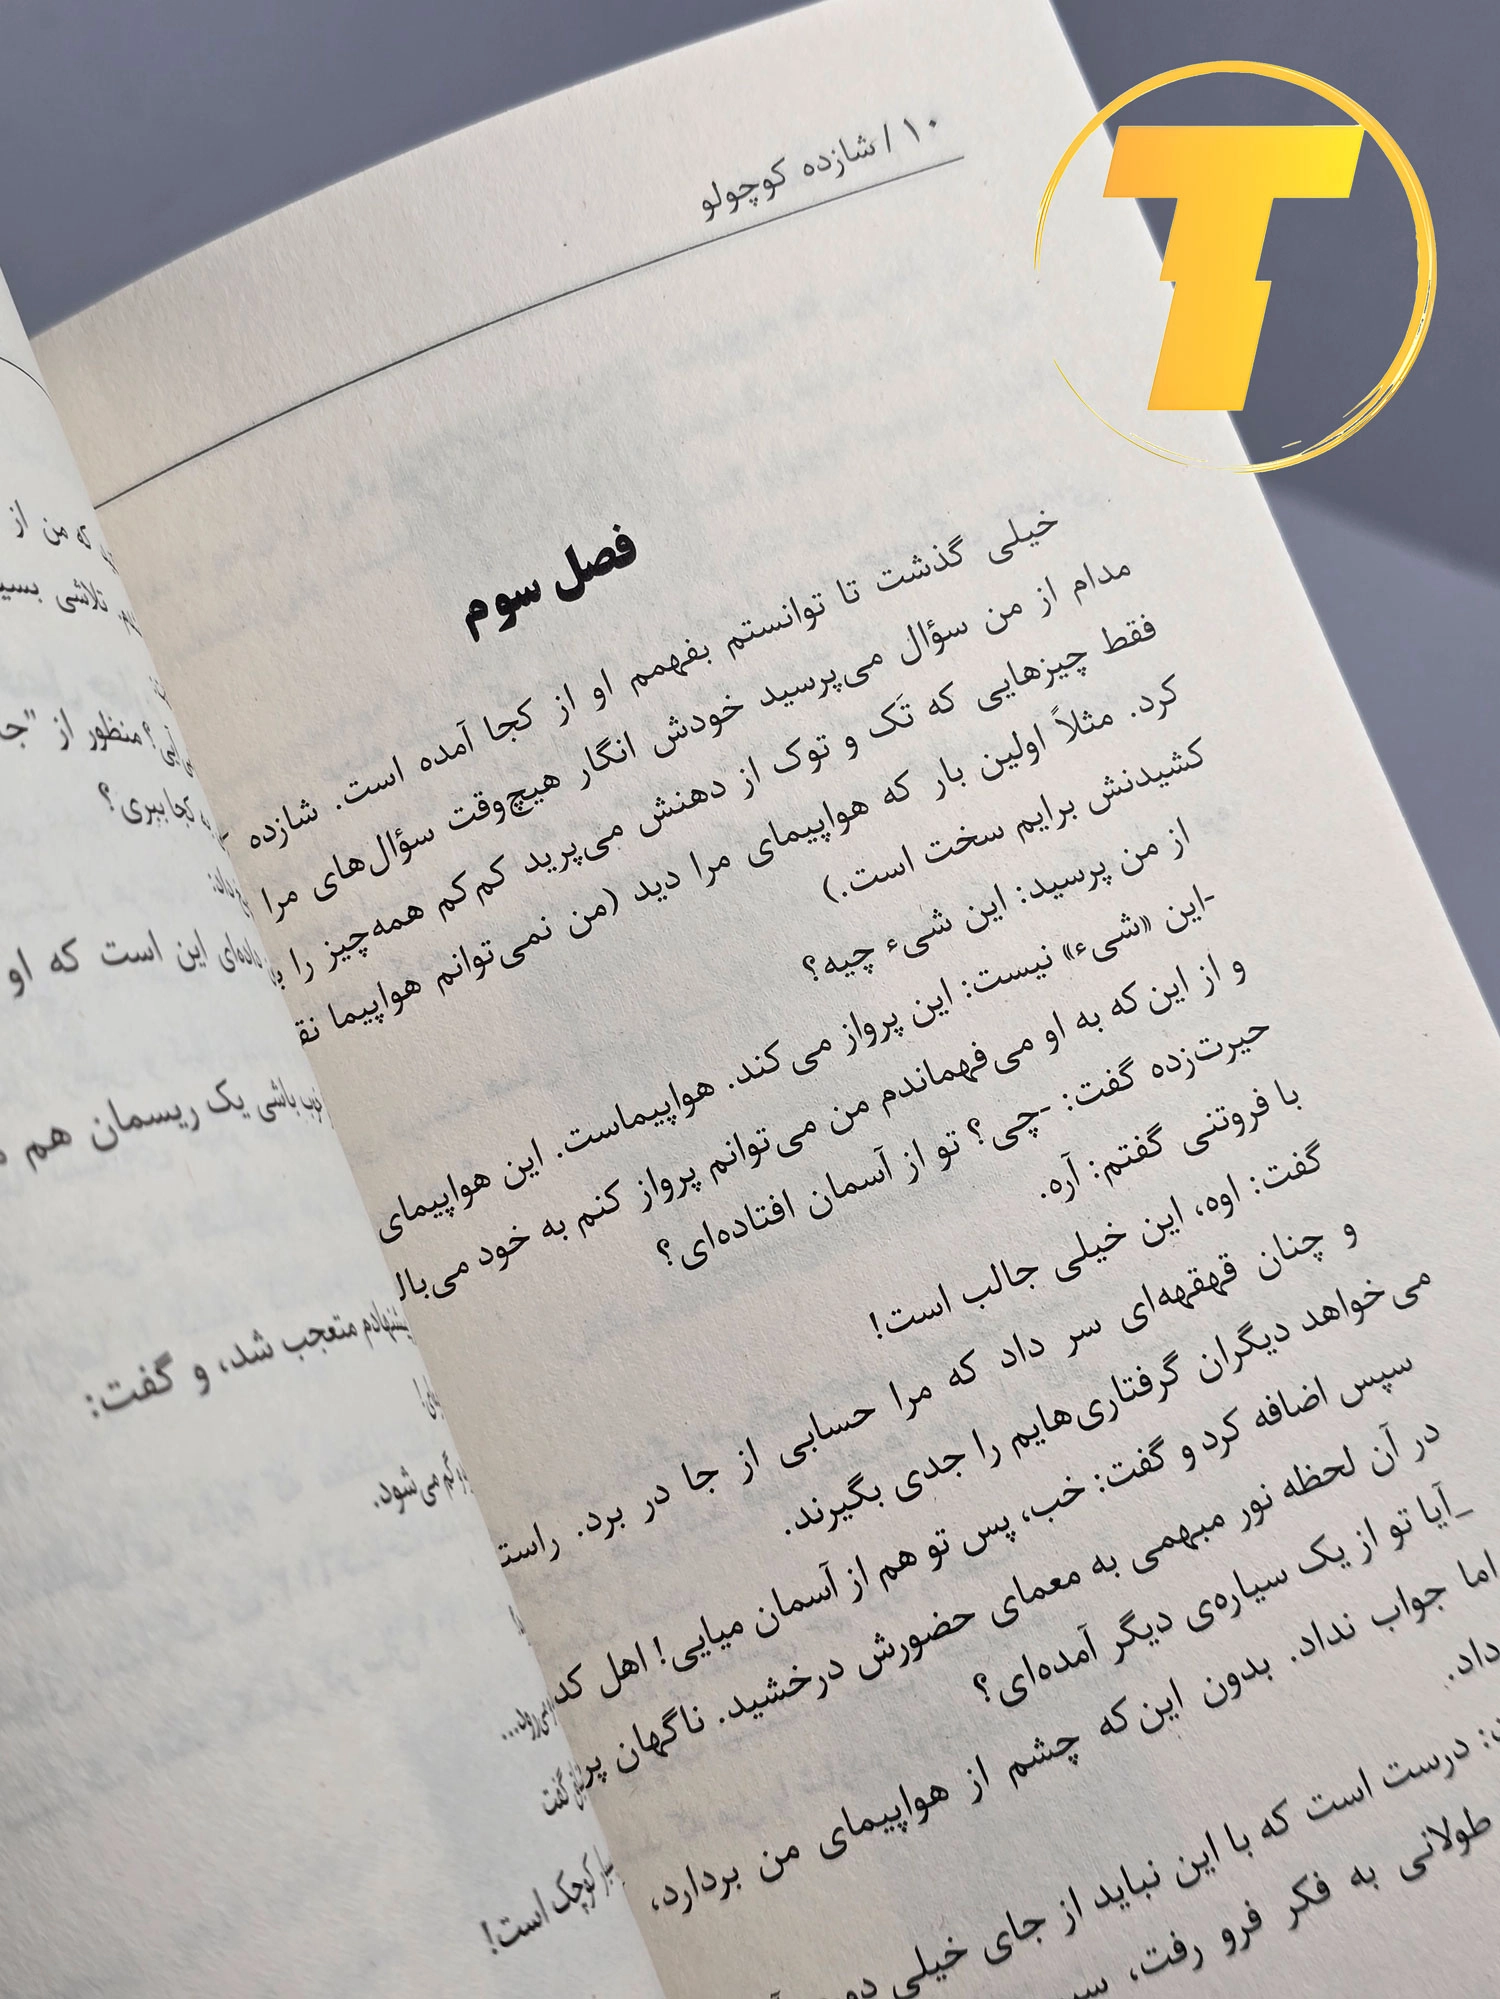 ۱۰ / شازده کوچولو
فصل سوم
خیلی گذشت تا توانستم بفهمم او از کجا آمده است. شازده
مدام از من سؤال می‌پرسید خودش انگار هیچ‌وقت سؤال‌های مرا
فقط چیزهایی که تَک و توک از دهنش می‌پرید کم‌کم همه‌چیز را
کرد. مثلاً اولین بار که هواپیمای مرا دید (من نمی‌توانم هواپیما
کشیدنش برایم سخت است.)
از من پرسید: این شیء چیه؟
-این «شیء» نیست: این پرواز می‌کند. هواپیماست. این هواپیمای
و از این‌که به او می‌فهماندم من می‌توانم پرواز کنم به خود
حیرت‌زده گفت: -چی؟ تو از آسمان افتاده‌ای؟
با فروتنی گفتم: آره.
گفت: اوه، این خیلی جالب است!
و چنان قهقهه‌ای سر داد که مرا حسابی از جا در برد.
می‌خواهد دیگران گرفتاری‌هایم را جدی بگیرند.
سپس اضافه کرد و گفت: خب، پس تو هم از آسمان میایی! اهل
در آن لحظه نور مبهمی به معمای حضورش درخشید. ناگهان
_آیا تو از یک سیاره‌ی دیگر آمده‌ای؟
اما جواب نداد. بدون این‌که چشم از هواپیمای من بردارد،
داد.
درست است که با این نباید از جای خیلی
طولانی به فکر فرو رفت،
که من از
تلاشی
منظور از
کجا ببری؟
این است که او
باشی یک ریسمان هم
متعجب شد، و گفت:
گم می‌شود.
گفت
کوچک است!
T